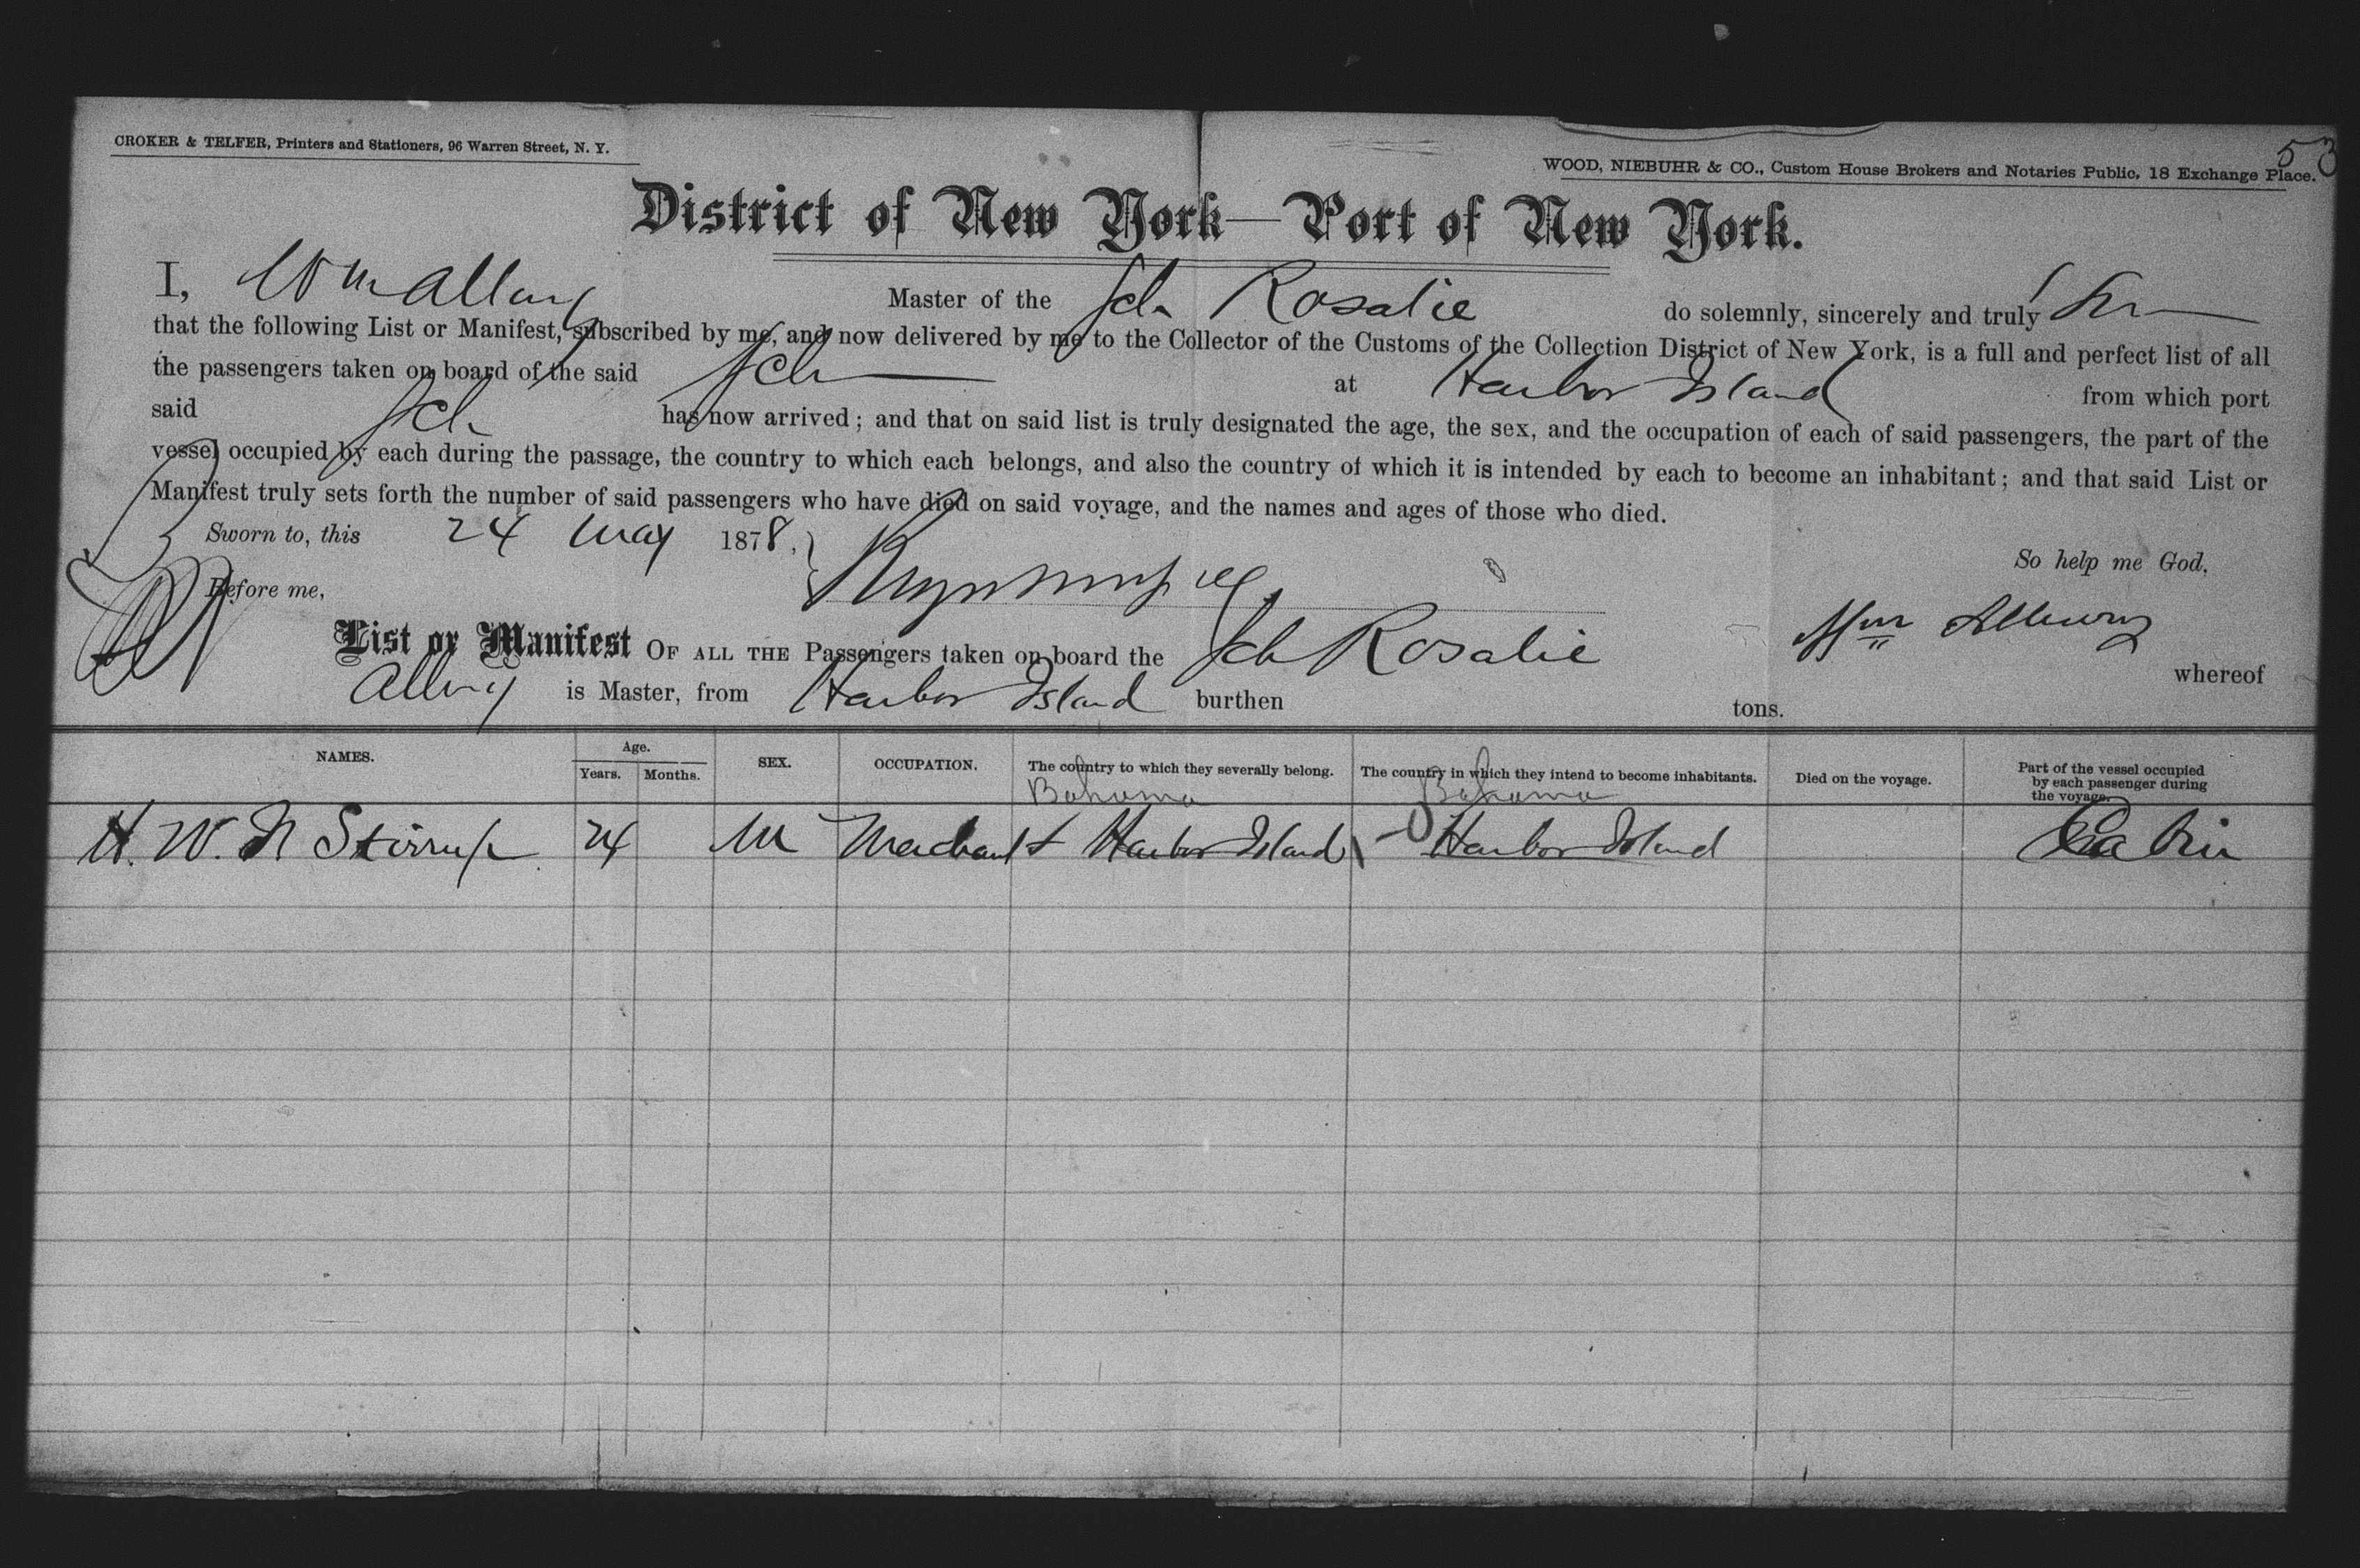 53
CROKER & TELFER, Printers and Stationers, 96 Warren Street, N. Y.
WOOD, NIEBUHR & CO., Custom House Brokers and Notaries Public, 18 Exchange Place.
District of New York—Port of New York.
I, Wm Allbury Master of the Sch Rosalie do solemnly, sincerely and truly
that the following List or Manifest, subscribed by me, and now delivered by me to the Collector of the Customs of the Collection District of New York, is a full and perfect list of all
the passengers taken on board of the said Sch at Harbor Island from which port
said Sch has now arrived; and that on said list is truly designated the age, the sex, and the occupation of each of said passengers, the part of the
vessel occupied by each during the passage, the country to which each belongs, and also the country of which it is intended by each to become an inhabitant; and that said List or
Manifest truly sets forth the number of said passengers who have died on said voyage, and the names and ages of those who died.
Sworn to, this 24 May 1878,
So help me God,
Before me,
Wm Allbury
List or Manifest OF ALL THE Passengers taken on board the Sch Rosalie whereof
Allbury is Master, from Harbor Island burthen tons.
NAMES. Age. Years. Months. SEX. OCCUPATION. The country to which they severally belong. The country in which they intend to become inhabitants. Died on the voyage. Part of the vessel occupied by each passenger during the voyage.
Bahama Bahama
H. W. N Stirrup 24 M Merchant Harbor Island Harbor Island Cabin